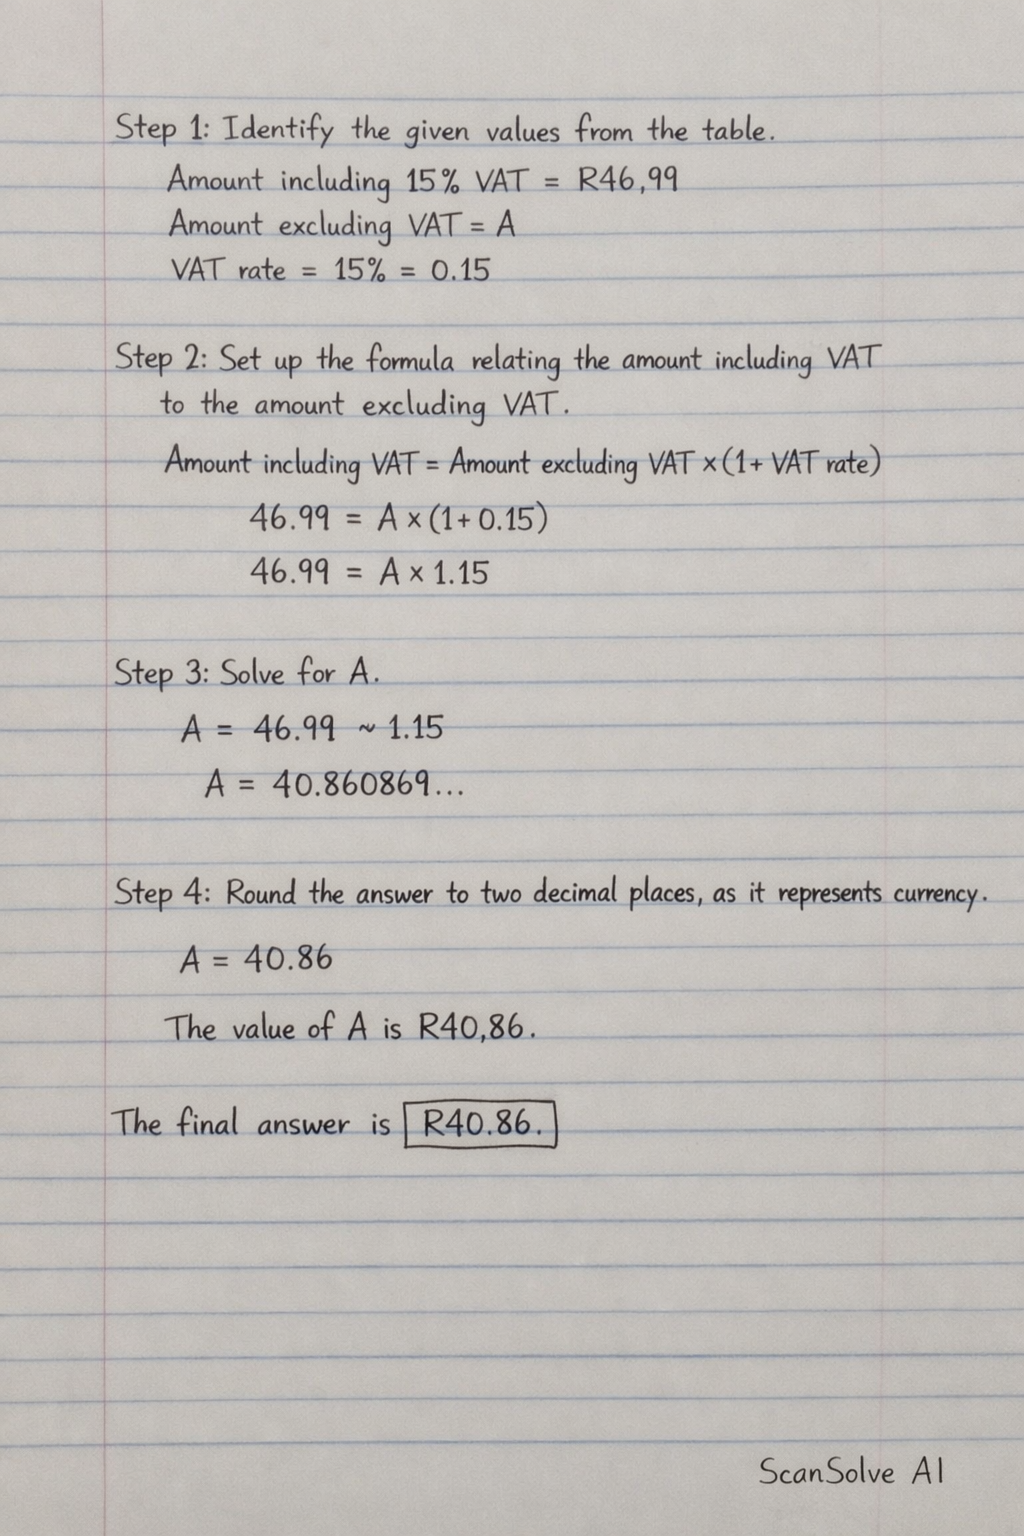 Step 1: Identify the given values from the table.
Amount including 15% VAT = R46,99
Amount excluding VAT = A
VAT rate = 15% = 0.15
Step 2: Set up the formula relating the amount including VAT
to the amount excluding VAT.
Amount including VAT = Amount excluding VAT × (1 + VAT rate)
46.99 = A × (1 + 0.15)
46.99 = A × 1.15
Step 3: Solve for A.
A = 46.99 ~ 1.15
A = 40.860869...
Step 4: Round the answer to two decimal places, as it represents currency.
A = 40.86
The value of A is R40,86.
The final answer is R40.86.
ScanSolve AI